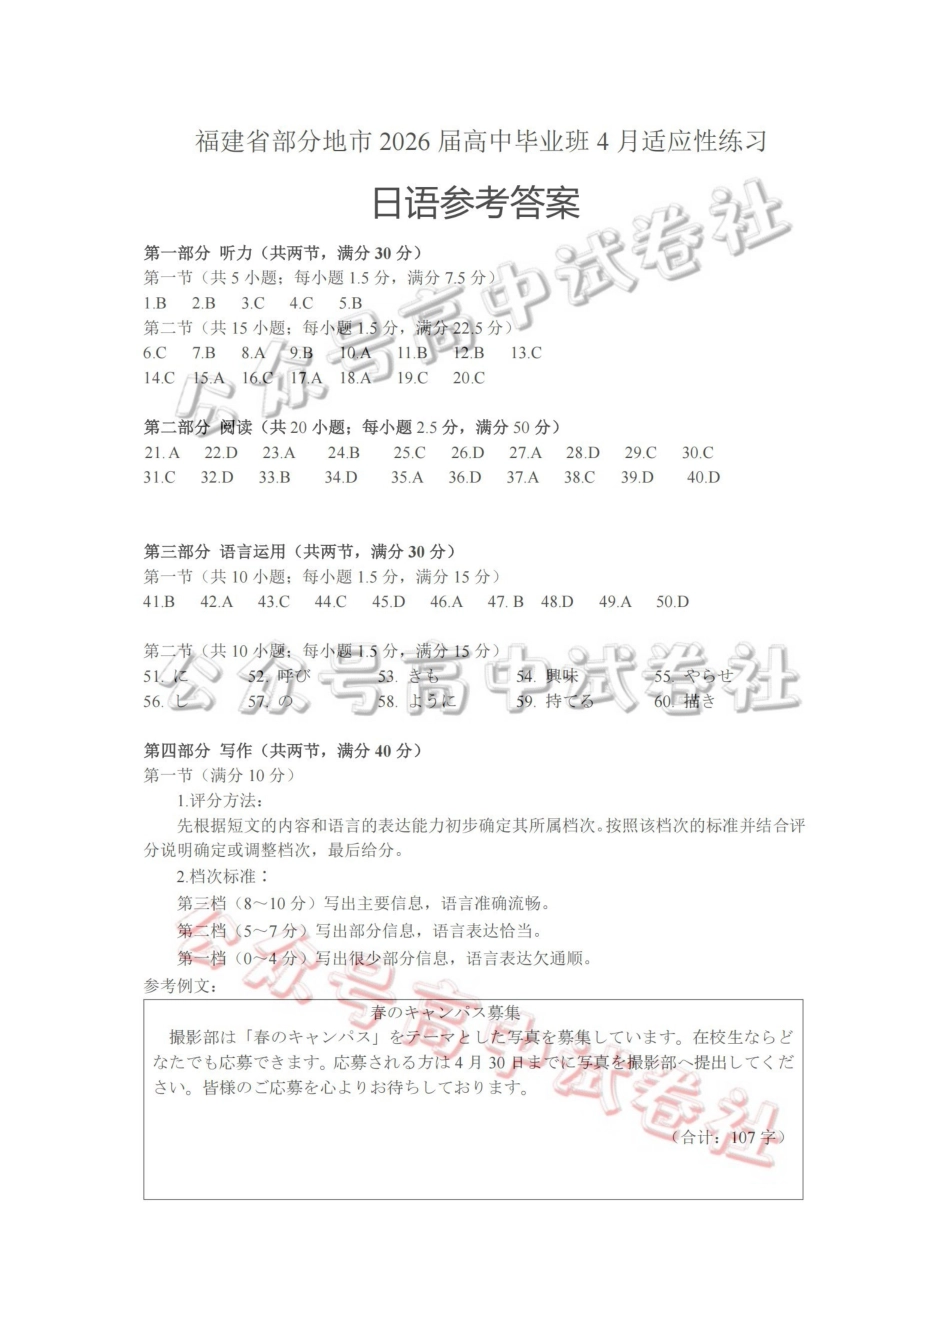 福建省部分地市 2026 届高中毕业班 4 月适应性练习
日语参考答案
第一部分 听力（共两节，满分 30 分）
第一节（共 5 小题；每小题 1.5 分，满分 7.5 分）
1.B 2.B 3.C 4.C 5.B
第二节（共 15 小题；每小题 1.5 分，满分 22.5 分）
6.C 7.B 8.A 9.B 10.A 11.B 12.B 13.C
14.C 15.A 16.C 17.A 18.A 19.C 20.C
第二部分 阅读（共 20 小题；每小题 2.5 分，满分 50 分）
21.A 22.D 23.A 24.B 25.C 26.D 27.A 28.D 29.C 30.C
31.C 32.D 33.B 34.D 35.A 36.D 37.A 38.C 39.D 40.D
第三部分 语言运用（共两节，满分 30 分）
第一节（共 10 小题；每小题 1.5 分，满分 15 分）
41.B 42.A 43.C 44.C 45.D 46.A 47. B 48.D 49.A 50.D
第二节（共 10 小题；每小题 1.5 分，满分 15 分）
51. に 52. 呼び 53. きも 54. 興味 55. やらせ
56. し 57. の 58. ように 59. 持てる 60. 描き
第四部分 写作（共两节，满分 40 分）
第一节（满分 10 分）
1.评分方法：
先根据短文的内容和语言的表达能力初步确定其所属档次。按照该档次的标准并结合评
分说明确定或调整档次，最后给分。
2.档次标准：
第三档（8～10 分）写出主要信息，语言准确流畅。
第二档（5～7 分）写出部分信息，语言表达恰当。
第一档（0～4 分）写出很少部分信息，语言表达欠通顺。
参考例文：
春のキャンパス募集
撮影部は「春のキャンパス」をテーマとした写真を募集しています。在校生ならど
なたでも応募できます。応募される方は 4 月 30 日までに写真を撮影部へ提出してくだ
さい。皆様のご応募を心よりお待ちしております。
（合计：107 字）
公众号高中试卷社
公众号高中试卷社
公众号高中试卷社